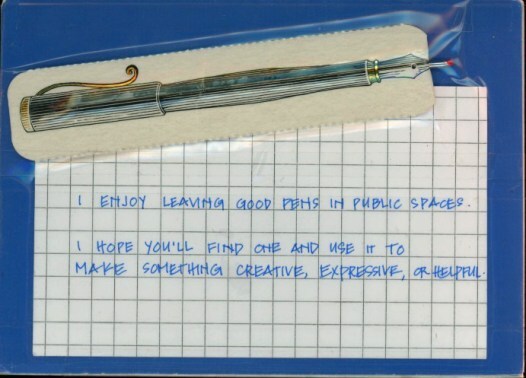 I ENJOY LEAVING GOOD PENS IN PUBLIC SPACES.
I HOPE YOU'LL FIND ONE AND USE IT TO
MAKE SOMETHING CREATIVE, EXPRESSIVE, OR HELPFUL.